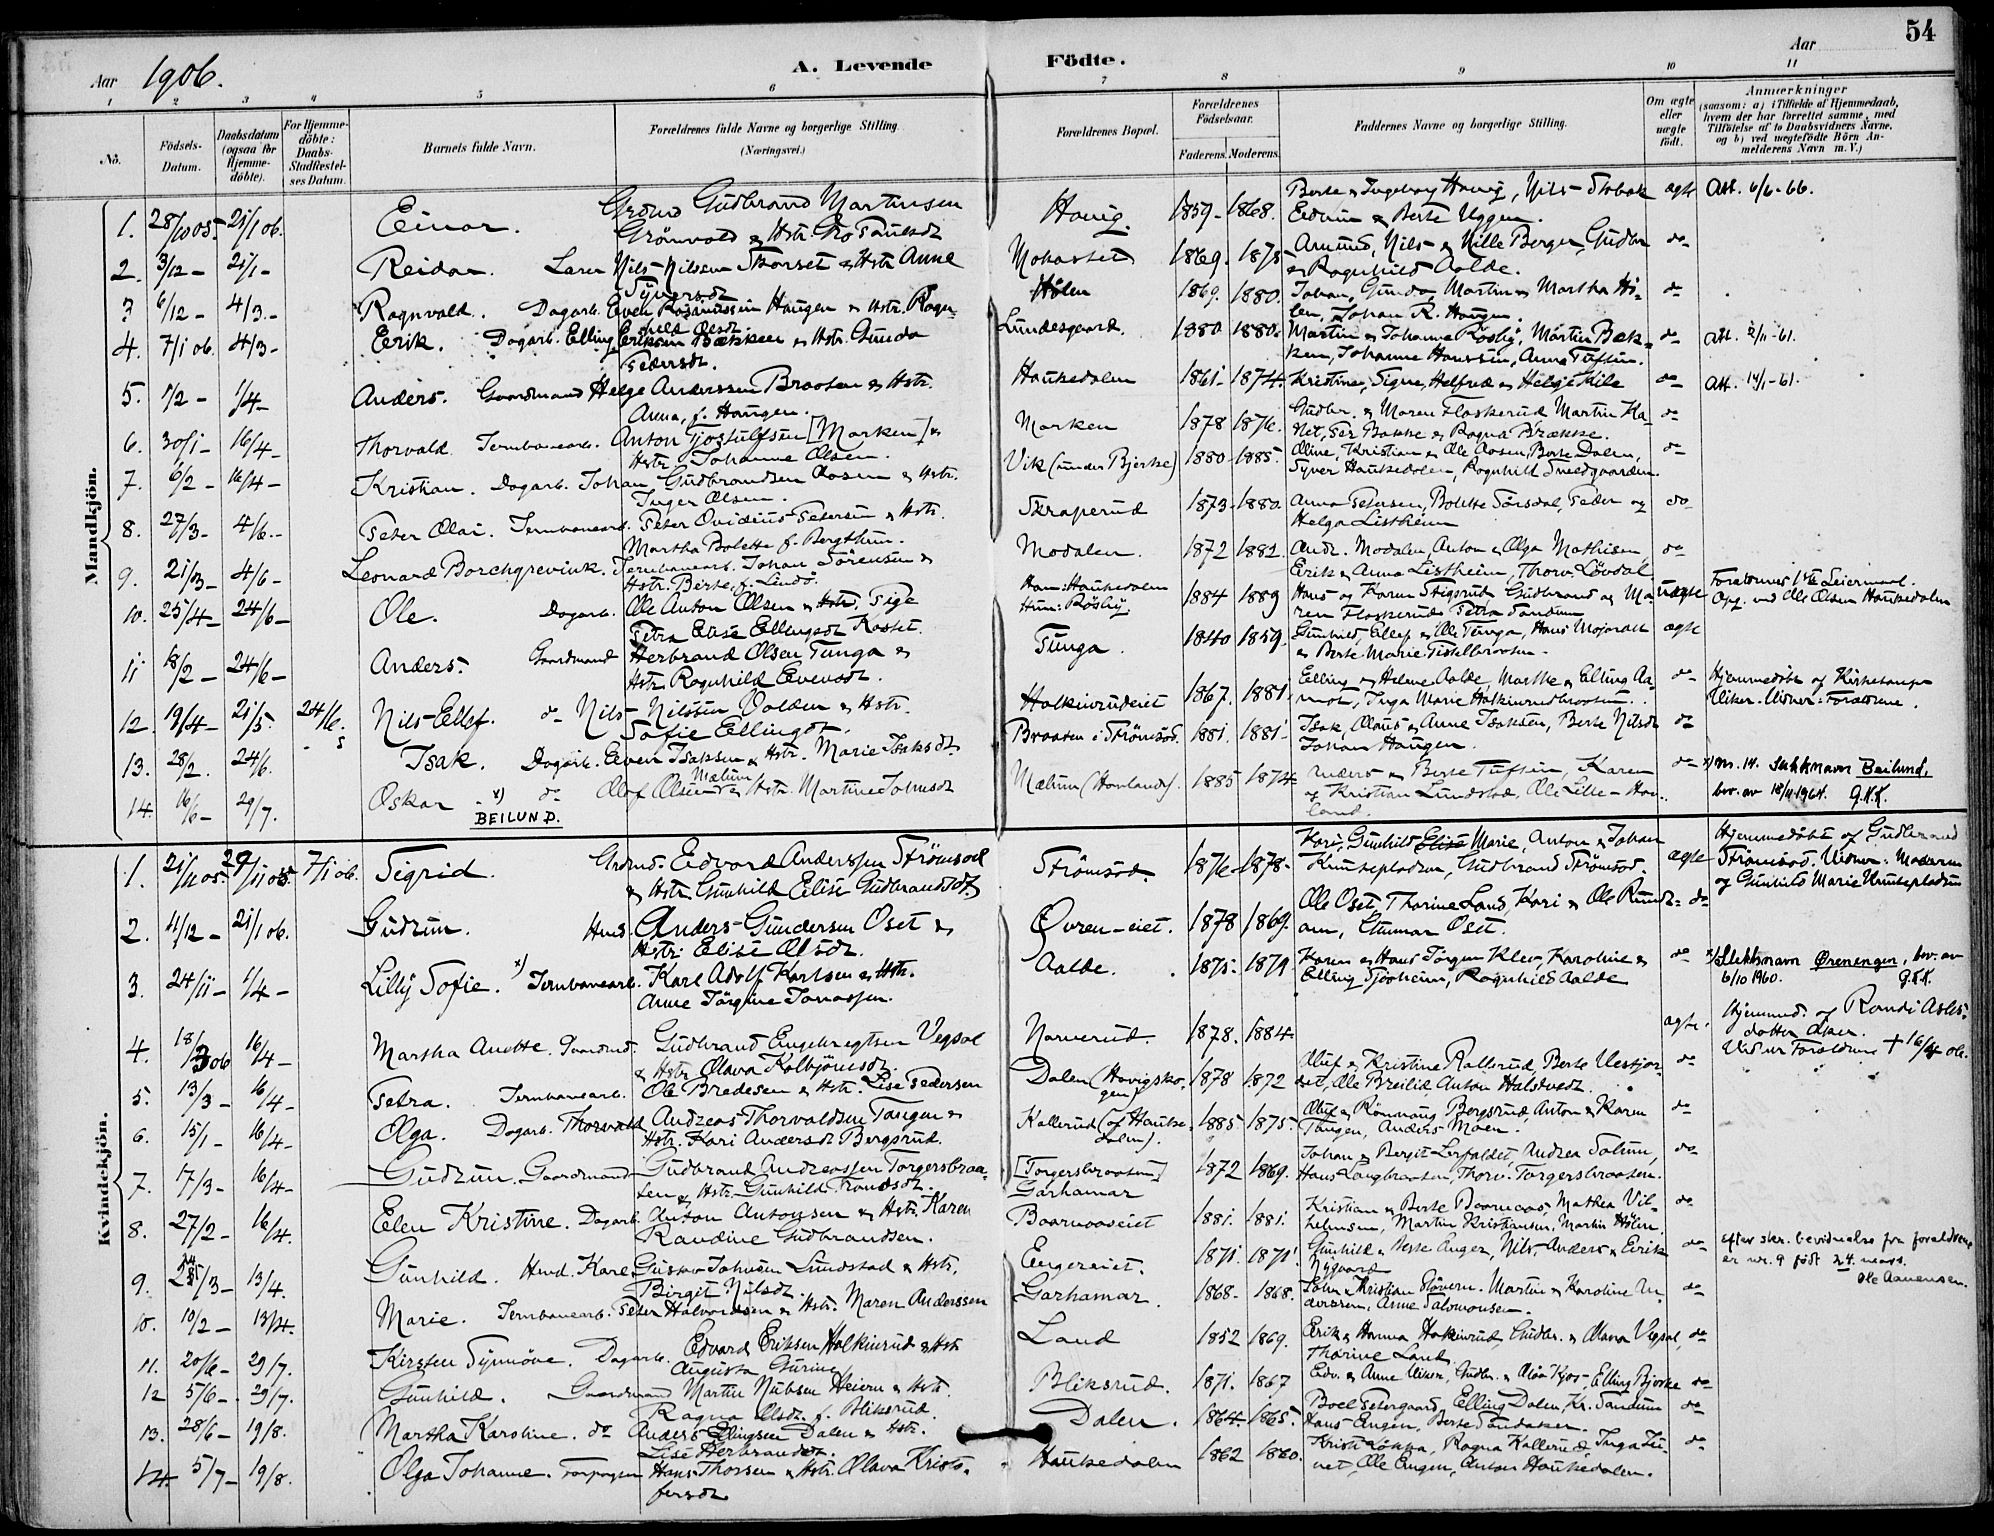 54
Aar 1906. A. Levende Födte. Aar
1 2 3 4 5 6 7 8 9 10 11
No. Födsels-Datum. Daabsdatum (ogsaa for Hjemme-döbte). For Hjemme-döbte: Daabs-Stadfæstel-ses Datum. Barnets fulde Navn. Forældrenes fulde Navne og borgerlige Stilling. (Næringsvei.) Forældrenes Bopæl. Forældrenes Födselsaar. Faderens. Moderens. Faddernes Navne og borgerlige Stilling. Om ægte eller uægte födt. Anmærkninger (saasom: a) i Tilfælde af Hjemmedaab, hvem der har forrettet samme, med Tilföielse af to Daabsvidners Navne, og b) ved uægtefödte Börn An-melderens Navn m. V.)
Mandkjön.
1. 28/10 05. 21/1 06. Einar. Grdmd Gudbrand Martinsen Grönvold & Hstr. Gro Paulsdt Hovig. 1859- 1868. Berte & Ingeborg Hovig, Nils Edvin & Berte Uggen. ægte Att. 6/6-66.
2. 3/12 - 21/1 - Reidar. Lærer Nils Nilssen Skorset & Hstr Anne Syversdt 1869. 1875 Amund, Nils & Nille Berger, Gudbr & Ragnhild Aalde. do
3 6/12 - 4/3.- Ragnvald. Dagarb. Even Rasmussen Haugen & Hstr. Ragnhild Olsdt Hölen 1869. 1880. Johan, Gunda, Martin & Martha Hölen, Johan R. Haugen. do
4. 7/1 06. 4/3 - Erik. Dagarb. Elling Eriksen Bækken & Hstr. Gunda Pedersdt. Lundesgaard. 1880 1880. Martin & Johanne Rösby, Martin Bækken, Johanne Hanssen, Anna Tufsin. do Att. 2/11-61.
5. 1/2 - 1/4 - Anders. Gaardmand Helge Anderssen Braaten & Hstr. Anna, f. Haugen. Haukedalen 1861- 1874. Kristine, Signe, Helfred & Helge Kile do Att. 14/1-61.
6. 30/1 - 16/4 - Thorvald Jernbanearb. Anton Gjostulfsen [Marken] & Hstr. Johanne Olsen. Marken 1878 1876. Gudbr. & Maren Flaskerud Martin Ka- Per Bakke & Ragna Brække. do
7. 6/2 - 16/4 - Kristian. Dagarb. Johan Gudbrandsen Aasen & Hstr. Inger Olsen. Vik (under Bjerke) 1880 1885. Oline, Kristian & Ole Aasen, Berte Dalen, Syver Haukedalen, Ragnhild Smedgaarden. do
8. 27/3 - 4/6 - Peter Olai. Jernbanearb. Peter Ovidius Petersen & Hstr. Martha Bolette f. Bergthun. Skraperud 1873 1880. Anna Petersen, Bolette Sörsdal, Peder og Helga Listheim do
9. 21/03 - 4/6 - Leonard Borchgrevink. Jernbanearb. Johan Sörensen & Hstr. Berte f. Lindö. Modalen. 1872 1882. Andr. Modalen, Anton & Olga Mathisen, Erik & Anna Listheim, Thorv. Lövdal do
10. 25/4 - 24/6 - Ole. Dagarb. Ole Anton Olsen & Hstr, Pige Petra Elise Ellingsdt Kaset. Ham: Haukedalen Hun: Rösby 1884 1889 Hans og Karen Stigsrud Gudbrand og Maren Flaskerud Petra Sandum uægte Forældrenes 1ste Leiermaal. Opg. ved Ole Olsen Haukedalen
11 18/2 - 24/6 - Anders. Gaardmand Herbrand Olsen Tunga & Hstr Ragnhild Evensdt. Tunga. 1840 1859. Gunhild, Ellef & Ole Tunga, Hans Mojordet & Berte Marie Tistelbraaten. ægte
12. 19/4 - 21/5. 24/6. Nils-Ellef. do Nils Nilssen Volden & Hstr. Sofie Ellingsdt. Halkinrudeiet 1867. 1881. Elling & Helene Aalde, Marthe & Elling Aamot, Inga Marie Halkinrudbraaten. do Hjemmedöbt af Kirkesanger Viker. Vidner: Forældrene.
13. 28/2. 24/6. Isak. Dagarb. Even Isaksen & Hstr. Marie Isaksdt. Braaten i Strömsod. 1881. 1881 Isak, Olaus & Anne Isaksen, Berte Nilsdt Johan Haugen. do
14. 16/6 - 29/7. Oskar x) BEILUND. do Olaf Olsen Mælum & Hstr. Martine Johnsdt Mælum (Hovland). 1885 1874 Anders & Berte Tufsin, Karen og Kristian Lundstad, Ole Lille-Hovland. do x) Nr. 14. Slektsnavn Beilund, bev. av 18/11 1964. G.K.K.
Kvindekjön.
1. 21/11 05. 29/11 05 7/1 06. Sigrid. Grdmd. Edvard Anderssen Strömsod & Hstr Gunhild Elise Gudbrandsdt. Strömsod. 1876. 1878. Kari, Gunhild Elise Marie, Anton & Johan Knuteplads, Gudbrand Strömsod. ægte Hjemmedöbt af Gudbrand Strömsod. Vidner: Moderen og Gunhild Marie Knutepladsen
2. 4/12 - 21/1 06. Gudrun. Hmd. Anders Gundersen Oset & Hstr. Elise Olsdt. Övren-eiet. 1878 1869. Ole Oset, Thorine Land, Kari & Ole Oset. do
3. 24/11 - 1/4 - Lilly Sofie. x) Jernbanearb. Karl Adolf Karlsen & Hstr. Anne Jörgine Jonassen. Aalde. 1875. 1879. Karen & Hans Jörgen Klev, Karoline & Elling Sjoheim, Ragnhild Aalde do x) Slektsnavn Öreningen, bev. av 6/10 1960. G.K.K.
4. 18/3 06 16/4 - Martha Anette. Gaardmd. Gudbrand Engebregtsen Vegsal & Hstr Olava Kolbjörnsdt. Narverud. 1878. 1884. ægte. Hjemmed. af Randi Asles-datter Aker. Vidner Forældrene † 16/4 06.
5. 13/3 - 16/4 - Petra. Jernbanearb. Ole Bredesen & Hstr. Lise Pedersen Dalen (Hovigsko-gen) 1878 1872 Oluf & Kristine Kallerud, Berte Vestjor-det, Ole Breilid, Anton Halstvedt. do
6. 15/1 - 16/4 - Olga. Dagarb. Thorvald Andreas Thorvaldsen Tangen & Hstr. Kari Andersdt Bergsrud. Kallerud (af Haukedalen). 1885 1875. Oluf & Rönnaug Bergsrud, Anton & Karen Tangen, Anders Moen. do
7. 17/3 - 16/4 - Gudrun. Gaardmand Gudbrand Andreassen Torgersbraaten & Hstr. Gunhild Trondsdt. [Torgersbraaten] Garhamar 1872 1869. Johan & Bergit Lerfaldet, Andrea Solum, Hans Langbraaten, Thorv. Torgersbraaten. do
8. 27/2 - 16/4. Elen Kristine. Dagarb. Anton Antonsen & Hstr. Karen Randine Gudbrandsen. Baarnaaseiet 1881. 1881. Kristian & Berte Baarnaas, Mathea Vilhelmsen, Martin Kristiansen, Martin Hölen. do
9. 24/3 - 13/4. Gunhild. Hmd. Karl Gustav Johnsen Lundstad & Hstr. Birgit Nilsdt. Eengereiet. 1871. 1871. Gunhild & Berte Enger, Nils, Anders & Eirik Nygaard do efter skr. bevidnelse fra forældrene er nr. 9 födt 24. mars. Ole Aanensen.
10. 10/2 - 13/4. Marie. Jernbanearb. Peter Halvordsen & Hstr. Maren Anderssen Garhamar. 1868- 1868. John & Kristian Stövern, Martin & Karoline Anderssen, Anne Salomonsen. do
11. 20/6 - 29/7. Kirsten Synnöve. Dagarb. Edvard Eriksen Halkinrud & Hstr Augusta Gurine Land 1852 1869. Erik & Hanna Halkinrud, Gudbr. & Olava Vegsal, Thorine Land. do
12 5/6 - 29/7. Gunhild. Gaardmand Martin Nubsen Heiern & Hstr. Ragna Olsdt. f. Bliksrud. Bliksrud. 1871. 1867 Edv. & Anne Viker, Gudbr. & Olea Kjos, Elling Bjerke do
13. 28/6 - 19/8. Martha Karoline. do Anders Ellingsen Dalen & Hstr. Lise Herbrandsdt. Dalen. 1864. 1865. Boel Petersgaard, Elling Dalen, Kr. Sandum Hans Engen, Berte Sandaker. do
14. 5/7 - 19/8. Olga Johanne. Forpagter Hans Thorsen & Hstr. Olava Kristoffersdt Haukedalen 1862 1860. Kristi Lökka, Ragna Kallerud Inga Ole Engen, Anton Haukedalen. do